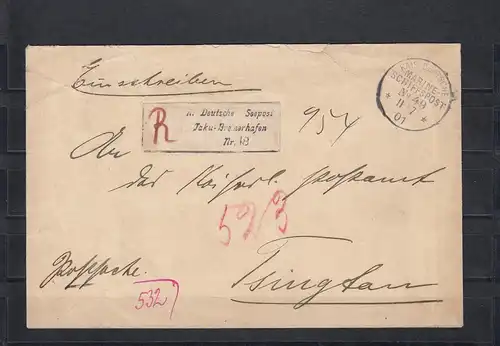 Einschreiben
KAIS. DEUTSCHE
MARINE-
SCHIFFSPOST
No 49
11 7
01
R
K. Deutsche Seepost
Taku-Bremerhafen
Nr. 48
954
An
das Kaiserl. Postamt
52/3
Tsingtau
Postsache.
532